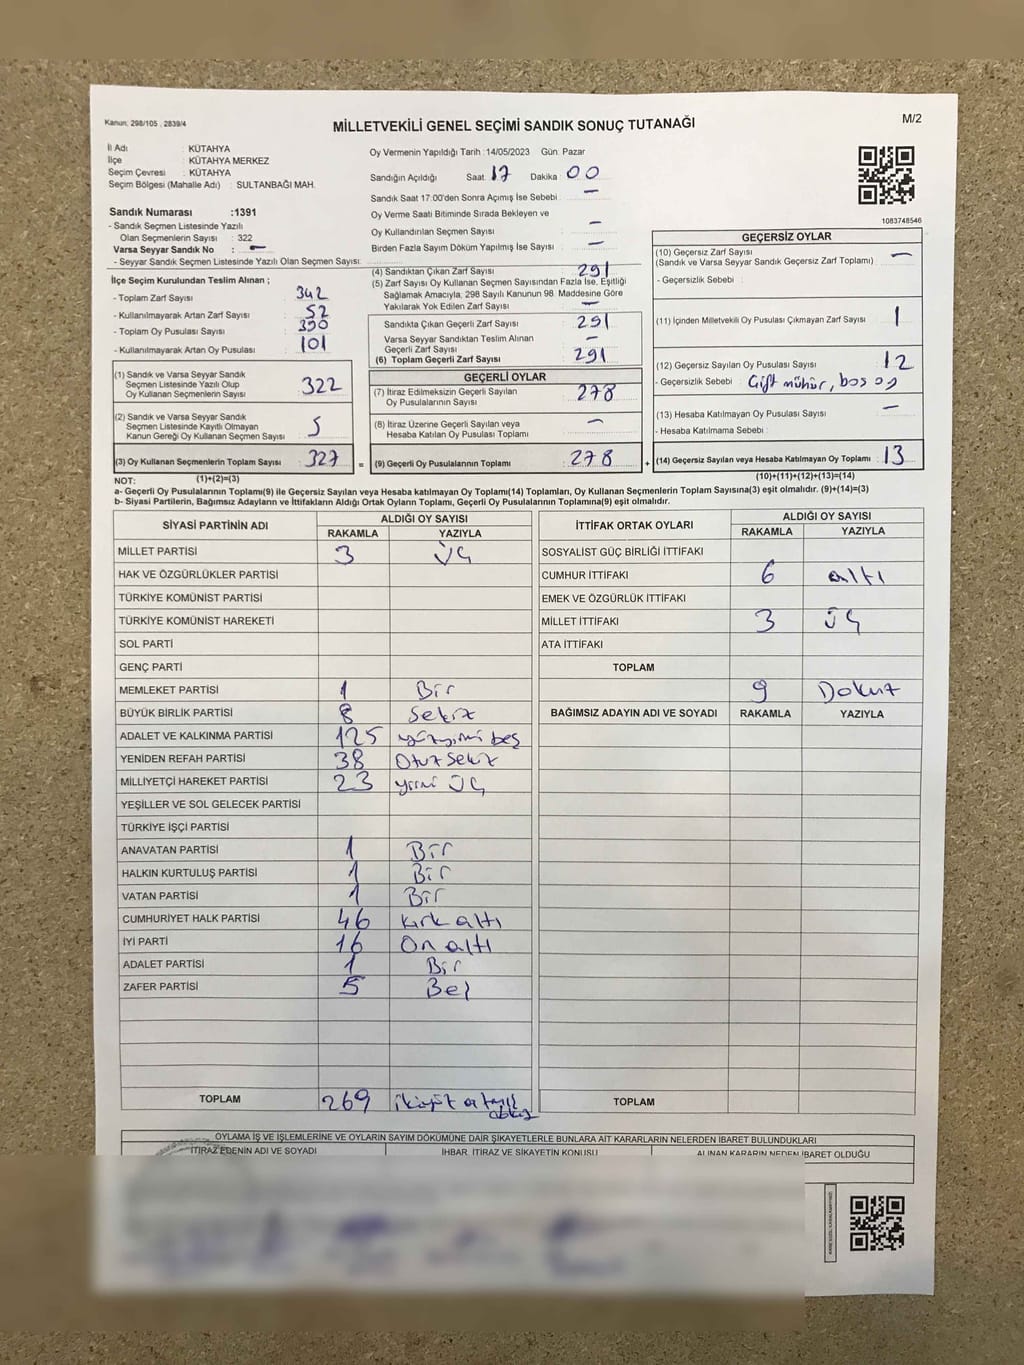 Kanun: 298/105 , 2839/4
MİLLETVEKİLİ GENEL SEÇİMİ SANDIK SONUÇ TUTANAĞI
M/2
İl Adı : KÜTAHYA
İlçe : KÜTAHYA MERKEZ
Seçim Çevresi : KÜTAHYA
Seçim Bölgesi (Mahalle Adı) : SULTANBAĞI MAH.
Sandık Numarası :1391
- Sandık Seçmen Listesinde Yazılı
Olan Seçmenlerin Sayısı : 322
Varsa Seyyar Sandık No : -
- Seyyar Sandık Seçmen Listesinde Yazılı Olan Seçmen Sayısı:
Oy Vermenin Yapıldığı Tarih :14/05/2023 Gün: Pazar
Sandığın Açıldığı Saat 17 Dakika 00
Sandık Saat 17:00'den Sonra Açımış İse Sebebi : -
Oy Verme Saati Bitiminde Sırada Bekleyen ve
Oy Kullandırılan Seçmen Sayısı : -
Birden Fazla Sayım Döküm Yapılmış İse Sayısı : -
1083748546
İlçe Seçim Kurulundan Teslim Alınan ;
- Toplam Zarf Sayısı : 342
- Kullanılmayarak Artan Zarf Sayısı : 52
- Toplam Oy Pusulası Sayısı : 390
- Kullanılmayarak Artan Oy Pusulası : 101
(1) Sandık ve Varsa Seyyar Sandık
Seçmen Listesinde Yazılı Olup
Oy Kullanan Seçmenlerin Sayısı : 322
(2) Sandık ve Varsa Seyyar Sandık
Seçmen Listesinde Kayıtlı Olmayan
Kanun Gereği Oy Kullanan Seçmen Sayısı : 5
(3) Oy Kullanan Seçmenlerin Toplam Sayısı : 327 =
(1)+(2)=(3)
(4) Sandıktan Çıkan Zarf Sayısı : 291
(5) Zarf Sayısı Oy Kullanan Seçmen Sayısından Fazla İse, Eşitliği
Sağlamak Amacıyla, 298 Sayılı Kanunun 98. Maddesine Göre
Yakılarak Yok Edilen Zarf Sayısı : -
Sandıkta Çıkan Geçerli Zarf Sayısı : 291
Varsa Seyyar Sandıktan Teslim Alınan
Geçerli Zarf Sayısı : -
(6) Toplam Geçerli Zarf Sayısı : 291
GEÇERLİ OYLAR
(7) İtiraz Edilmeksizin Geçerli Sayılan
Oy Pusulalarının Sayısı : 278
(8) İtiraz Üzerine Geçerli Sayılan veya
Hesaba Katılan Oy Pusulası Toplamı : -
(9) Geçerli Oy Pusulalarının Toplamı : 278 +
GEÇERSİZ OYLAR
(10) Geçersiz Zarf Sayısı : -
(Sandık ve Varsa Seyyar Sandık Geçersiz Zarf Toplamı)
- Geçersizlik Sebebi :
(11) İçinden Milletvekili Oy Pusulası Çıkmayan Zarf Sayısı : 1
(12) Geçersiz Sayılan Oy Pusulası Sayısı : 12
- Geçersizlik Sebebi : Çift mühür, boş oy
(13) Hesaba Katılmayan Oy Pusulası Sayısı : -
- Hesaba Katılmama Sebebi :
(14) Geçersiz Sayılan veya Hesaba Katılmayan Oy Toplamı : 13
(10)+(11)+(12)+(13)=(14)
NOT:
a- Geçerli Oy Pusulalarının Toplamı(9) ile Geçersiz Sayılan veya Hesaba katılmayan Oy Toplamı(14) Toplamları, Oy Kullanan Seçmenlerin Toplam Sayısına(3) eşit olmalıdır. (9)+(14)=(3)
b- Siyasi Partilerin, Bağımsız Adayların ve İttifakların Aldığı Ortak Oyların Toplamı, Geçerli Oy Pusulalarının Toplamına(9) eşit olmalıdır.
SİYASİ PARTİNİN ADI ALDIĞI OY SAYISI
RAKAMLA YAZIYLA
MİLLET PARTİSİ 3 Üç
HAK VE ÖZGÜRLÜKLER PARTİSİ
TÜRKİYE KOMÜNİST PARTİSİ
TÜRKİYE KOMÜNİST HAREKETİ
SOL PARTİ
GENÇ PARTİ
MEMLEKET PARTİSİ 1 Bir
BÜYÜK BİRLİK PARTİSİ 8 Sekiz
ADALET VE KALKINMA PARTİSİ 125 yüzyirmi beş
YENİDEN REFAH PARTİSİ 38 Otuz Sekiz
MİLLİYETÇİ HAREKET PARTİSİ 23 yirmi Üç
YEŞİLLER VE SOL GELECEK PARTİSİ
TÜRKİYE İŞÇİ PARTİSİ
ANAVATAN PARTİSİ 1 Bir
HALKIN KURTULUŞ PARTİSİ 1 Bir
VATAN PARTİSİ 1 Bir
CUMHURİYET HALK PARTİSİ 46 kırk altı
İYİ PARTİ 16 On altı
ADALET PARTİSİ 1 Bir
ZAFER PARTİSİ 5 Beş
TOPLAM 269 ikiyüz atmış dokuz
İTTİFAK ORTAK OYLARI ALDIĞI OY SAYISI
RAKAMLA YAZIYLA
SOSYALİST GÜÇ BİRLİĞİ İTTİFAKI
CUMHUR İTTİFAKI 6 altı
EMEK VE ÖZGÜRLÜK İTTİFAKI
MİLLET İTTİFAKI 3 Üç
ATA İTTİFAKI
TOPLAM
9 Dokuz
BAĞIMSIZ ADAYIN ADI VE SOYADI RAKAMLA YAZIYLA
TOPLAM
OYLAMA İŞ VE İŞLEMLERİNE VE OYLARIN SAYIM DÖKÜMÜNE DAİR ŞİKAYETLERLE BUNLARA AİT KARARLARIN NELERDEN İBARET BULUNDUKLARI
İTİRAZ EDENİN ADI VE SOYADI İHBAR, İTİRAZ VE ŞİKAYETİN KONUSU ALINAN KARARIN NEDEN İBARET OLDUĞU